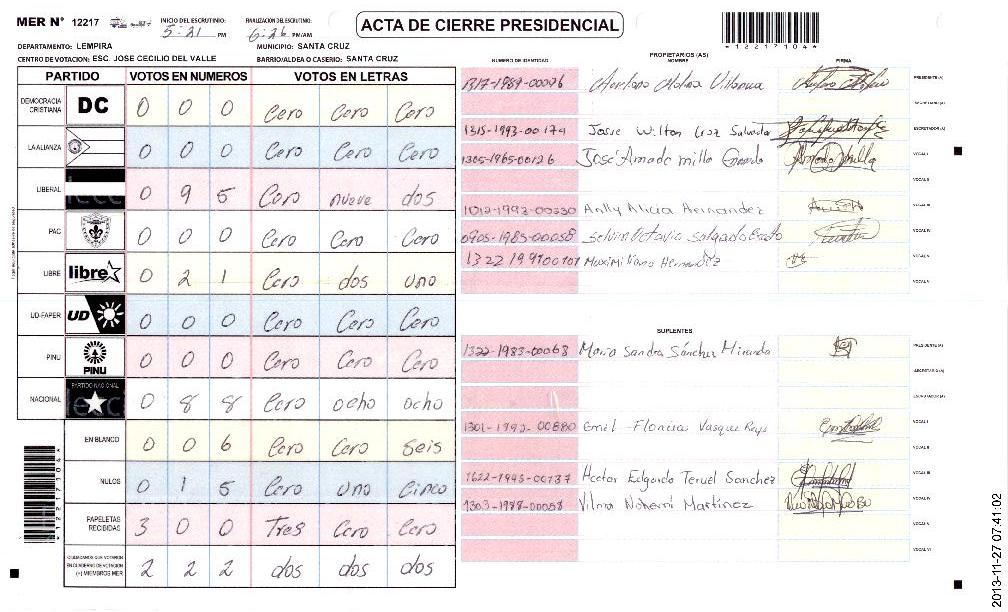 MER N° 12217
INICIO DEL ESCRUTINIO: 5:21 PM
FINALIZACIÓN DEL ESCRUTINIO: 6:26 PM/AM
ACTA DE CIERRE PRESIDENCIAL
*12217104*
DEPARTAMENTO: LEMPIRA
MUNICIPIO: SANTA CRUZ
CENTRO DE VOTACION: ESC. JOSE CECILIO DEL VALLE
BARRIO/ALDEA O CASERIO: SANTA CRUZ
PARTIDO VOTOS EN NUMEROS VOTOS EN LETRAS
DEMOCRACIA CRISTIANA DC 0 0 0 Cero Cero Cero
LA ALIANZA 0 0 0 Cero Cero Cero
LIBERAL 0 9 5 Cero nueve dos
PAC 0 0 0 Cero Cero Cero
LIBRE libre 0 2 1 Cero dos uno
UD-FAPER UD 0 0 0 Cero Cero Cero
PINU PINU 0 0 0 Cero Cero Cero
NACIONAL PARTIDO NACIONAL 0 8 8 Cero ocho ocho
EN BLANCO 0 0 6 Cero Cero Seis
NULOS 0 1 5 Cero uno Cinco
PAPELETAS RECIBIDAS 3 0 0 Tres Cero Cero
CIUDADANOS QUE VOTARON EN CUADERNO DE VOTACION (+) MIEMBROS MER 2 2 2 dos dos dos
*12217104*
PROPIETARIOS (AS)
NUMERO DE IDENTIDAD NOMBRE FIRMA
1317-1989-00096 Molina Villanueva PRESIDENTE (A)
SECRETARIO (A)
1315-1993-00174 Josue Wilton Cruz ESCRUTADOR (A)
1305-1965-00126 José Amado milla VOCAL I
VOCAL II
1012-1992-00330 Anlly Alicia Hernandez VOCAL III
0905-1985-00058 Selvin Octavio Salgado VOCAL IV
1322 1991 00101 Maximiliano Hernández VOCAL V
VOCAL VI
SUPLENTES
1322-1983-00068 Maria Sandra Sánchez Miranda PRESIDENTE (A)
SECRETARIO (A)
ESCRUTADOR (A)
1301-1992-00880 Emil Vasquez Reyes VOCAL I
VOCAL II
1622-1993-00737 Hector Edgardo Teruel Sanchez VOCAL III
1303-1988-00058 Vilma Nohemi Martínez VOCAL IV
VOCAL V
VOCAL VI
2013-11-27 07:41:02